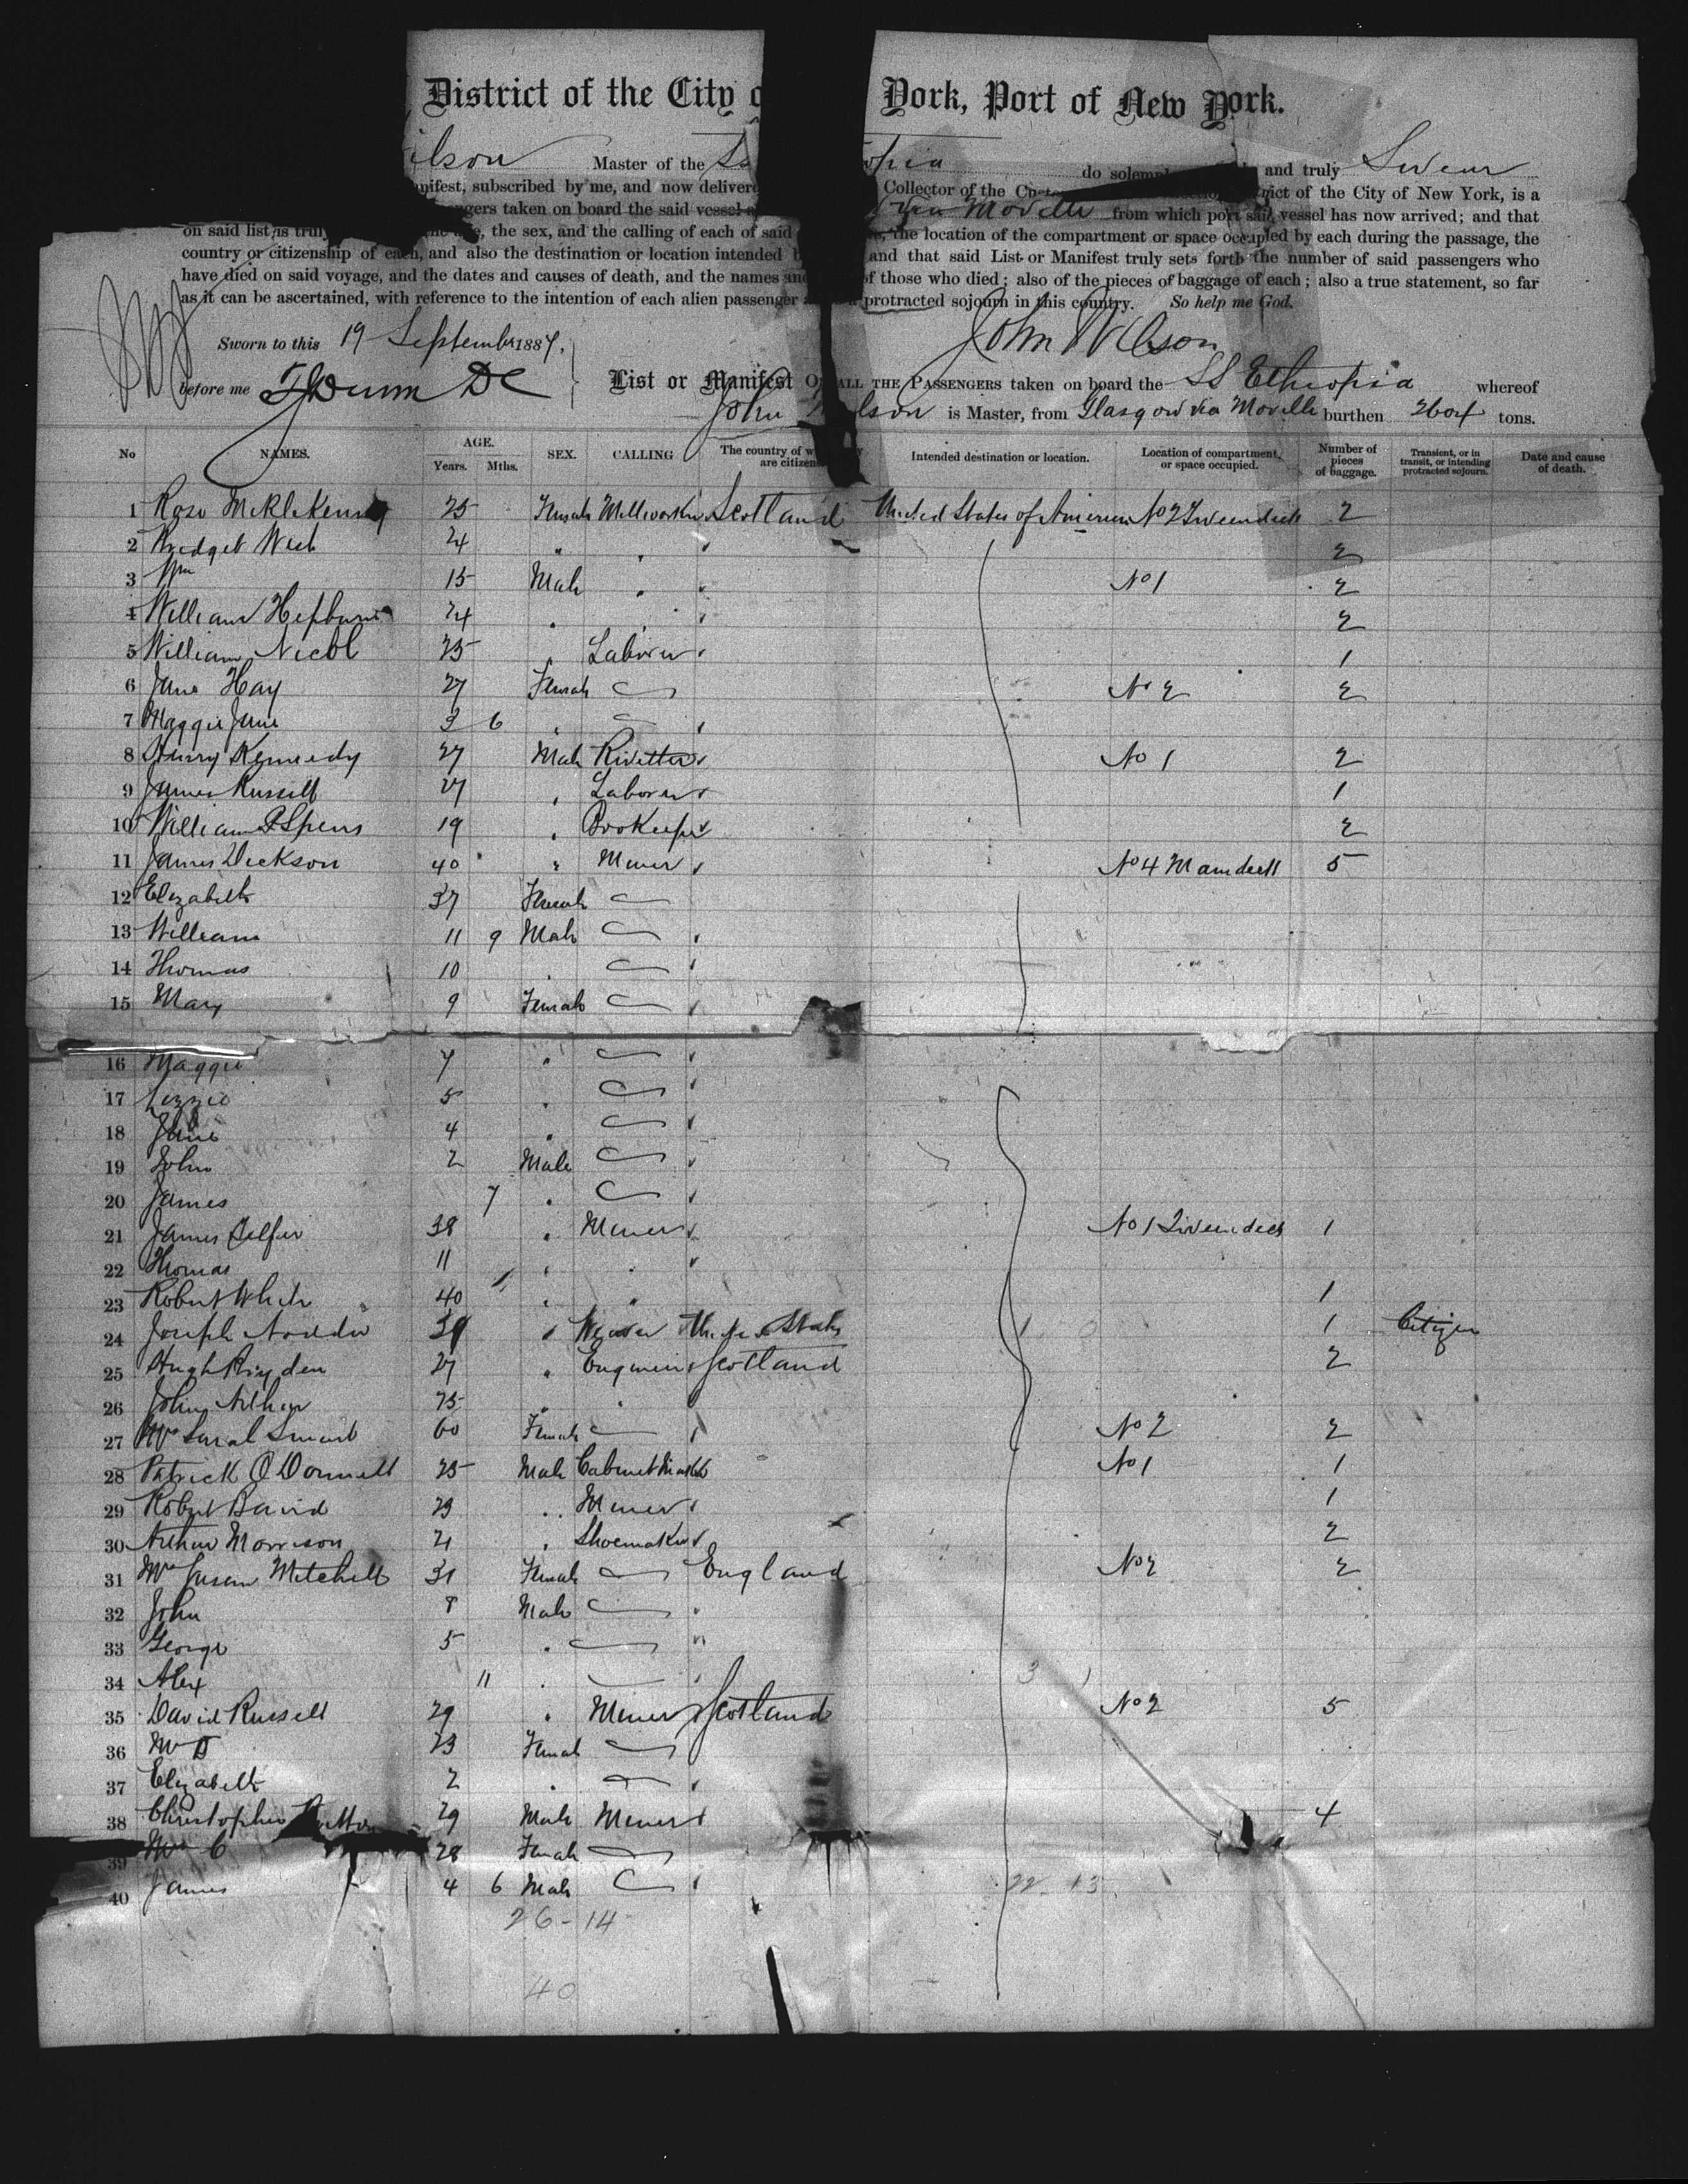 District of the City o York, Port of New York.
ilson Master of the SS opia do solemn and truly Swear
nifest, subscribed by me, and now delivered Collector of the Customs rict of the City of New York, is a
ngers taken on board the said vessel via Moville from which port said vessel has now arrived; and that
on said list is truly the age, the sex, and the calling of each of said the location of the compartment or space occupied by each during the passage, the
country or citizenship of each, and also the destination or location intended b and that said List or Manifest truly sets forth the number of said passengers who
have died on said voyage, and the dates and causes of death, and the names and of those who died; also of the pieces of baggage of each; also a true statement, so far
as it can be ascertained, with reference to the intention of each alien passenger a protracted sojourn in this country. So help me God.
Sworn to this 19 September 1887, John Wilson
before me List or Manifest OF ALL THE PASSENGERS taken on board the SS Ethiopia whereof
John Wilson is Master, from Glasgow via Moville burthen 2604 tons.
No NAMES. AGE. Years. Mths. SEX. CALLING The country of w are citizens Intended destination or location. Location of compartment, or space occupied. Number of pieces of baggage. Transient, or in transit, or intending protracted sojourn. Date and cause of death.
1 Rose 25 Female Millworker Scotland United States of America No 2 Tweendeck 2
2 Bridget 24 " " " 2
3 Wm 15 Male " " No 1 2
4 William Hepburn 24 " " " 2
5 William Nicol 25 " Laborer " 1
6 Jane Hay 27 Female No 2 2
7 Maggie Jane 3 6 " "
8 Henry Kennedy 27 Male Rivetter " No 1 2
9 James Russell 27 " Laborer " 1
10 William Spens 19 " Bookeeper " 2
11 James Dickson 40 " Miner " No 4 Maindeck 5
12 Elizabeth 37 Female
13 William 11 9 Male "
14 Thomas 10 " "
15 Mary 9 Female "
16 Maggie 7 " "
17 Lizzie 5 " "
18 Jane 4 " "
19 John 2 Male "
20 James 7 " "
21 James Telfer 38 " Miner " No 1 Tweendeck 1
22 Thomas 11 " " "
23 Robert White 40 " " 1
24 Joseph " Weaver United States 1 Citizen
25 Hugh 27 " Engineer Scotland 2
26 John Arthur 25 " "
27 Mrs Sarah Smart 60 Female " No 2 2
28 Patrick O'Donnell 25 Male Cabinet Maker No 1 1
29 Robert Baird 23 " Miner " 1
30 Arthur Morrison 21 " Shoemaker " 2
31 Mrs Susan Mitchell 31 Female England No 2 2
32 John 8 Male "
33 George 5 " "
34 Alex 11 " "
35 David Russell 29 " Miner Scotland No 2 5
36 Mrs D 23 Female
37 Elizabeth 2 " "
38 Christopher 29 Male Miner " 4
39 Mrs C 28 Female
40 James 4 6 Male " 22 13
26-14
40